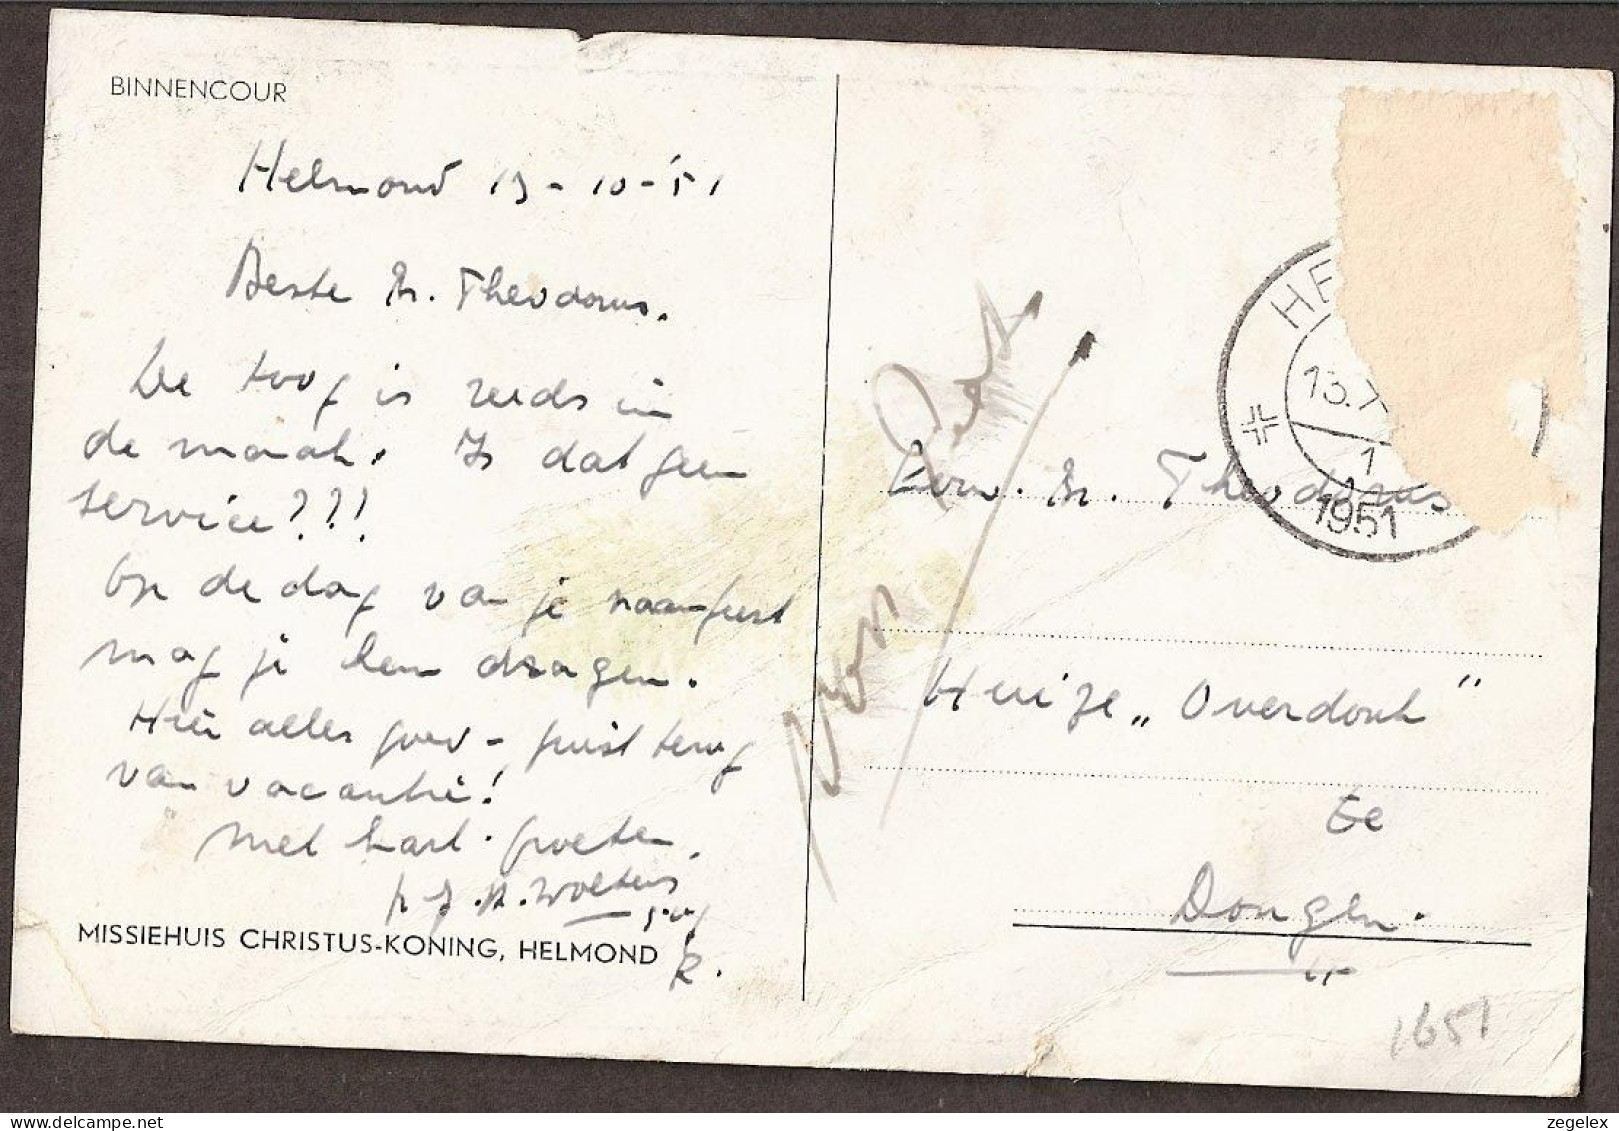 BINNENCOUR
Helmond 13-10-'51
Beste Br. Theodorus.
De toog is reeds in
de maak. Is dat geen
service???!
Op de dag van je naamfeest
mag je hem dragen.
Hier alles goed - juist terug
van vacantie!
Met hart. groeten,
p. J. A. Wolters
MISSIEHUIS CHRISTUS-KONING, HELMOND
HE
13.X
1
1951
Eerw. Br. Theodorus
Huize „Overdonk"
te
Dongen.
1651
zegelex